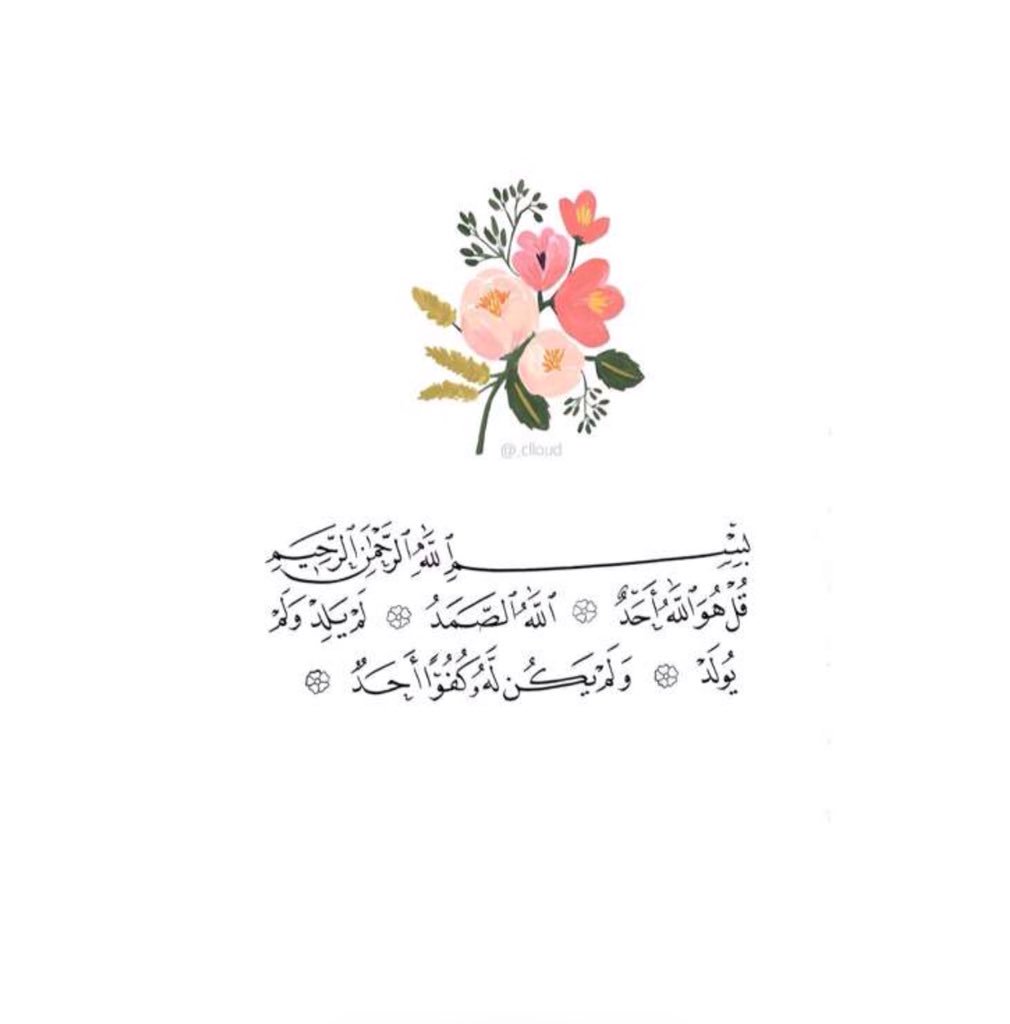 @_clloud
بِسْمِ ٱللَّهِ ٱلرَّحْمَٰنِ ٱلرَّحِيمِ
قُلْ هُوَ ٱللَّهُ أَحَدٌ ۝ ٱللَّهُ ٱلصَّمَدُ ۝ لَمْ يَلِدْ وَلَمْ
يُولَدْ ۝ وَلَمْ يَكُن لَّهُۥ كُفُوًا أَحَدٌۢ ۝